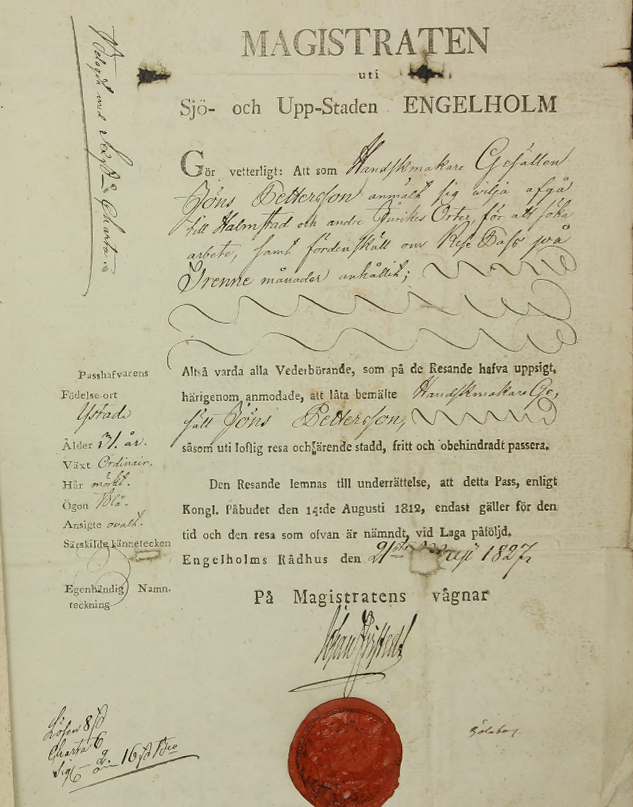 MAGISTRATEN
uti
Sjö- och Upp-Staden ENGELHOLM
Gör vetterligt: Att som Handskmakare Gesällen
Jöns Pettersson anmält sig wilja afgå
till Halmstad och andre Inrikes Orter för att söka
arbete, samt fördenskull om Rese Pass på
Trenne månader anhållit;
Altså varda alla Vederbörande, som på de Resande hafva uppsigt,
härigenom anmodade, att låta bemälte Handskmakare Ge-
säll Jöns Pettersson,
såsom uti loflig resa och ärende stadd, fritt och obehindradt passera.
Den Resande lemnas till underrättelse, att detta Pass, enligt
Kongl. Påbudet den 14:de Augusti 1812, endast gäller för den
tid och den resa som ofvan är nämndt, vid Laga påföljd.
Engelholms Rådhus den 21sta 1827,
På Magistratens vägnar
Passhafvarens
Födelse-ort
Ystad
Ålder 31. år.
Växt Ordinair.
Hår mörkt.
Ögon Blå.
Ansigte ovalt.
Särskilde kännetecken
Egenhändig Namn-
teckning
Belagdt med Charta
Lösen 8 ß
Charta 6
16 ß Bco